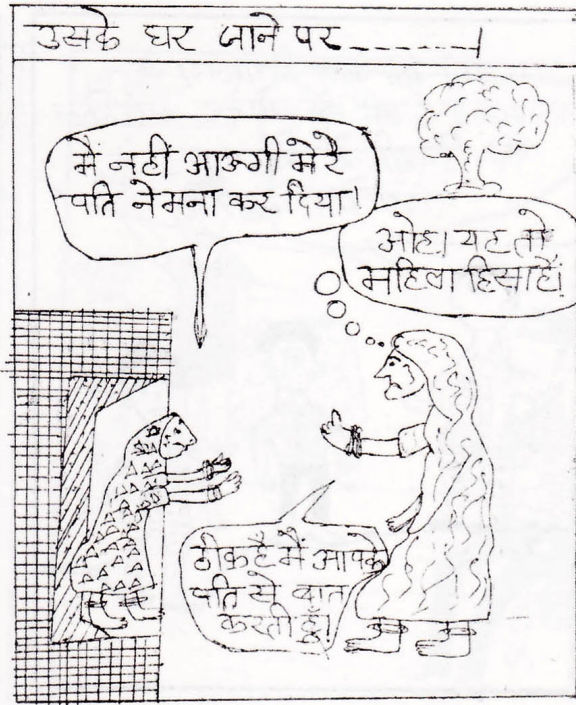 उसके घर जाने पर-------।
मैं नहीं आऊगी मेरे
पति ने मना कर दिया।
ओह। यह तो
महिला हिंसा है।
ठीक है मैं आपके
पति से बात
करती हूँ।